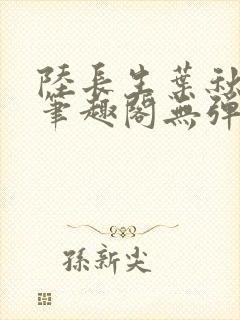 陸長生葉秋
筆趣閣無彈
孫新尖